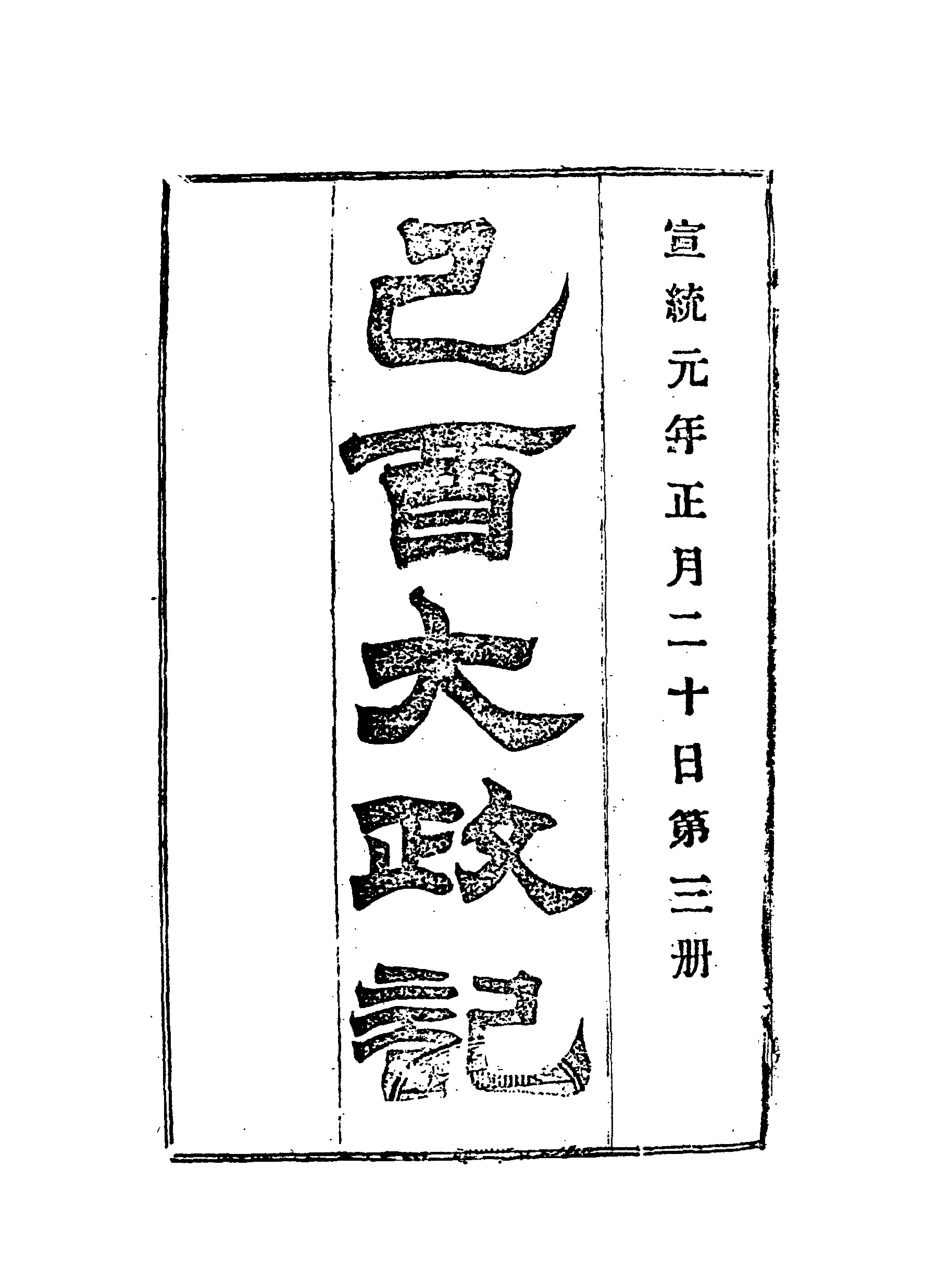 宣統元年正月二十日第三册
己酉大政記